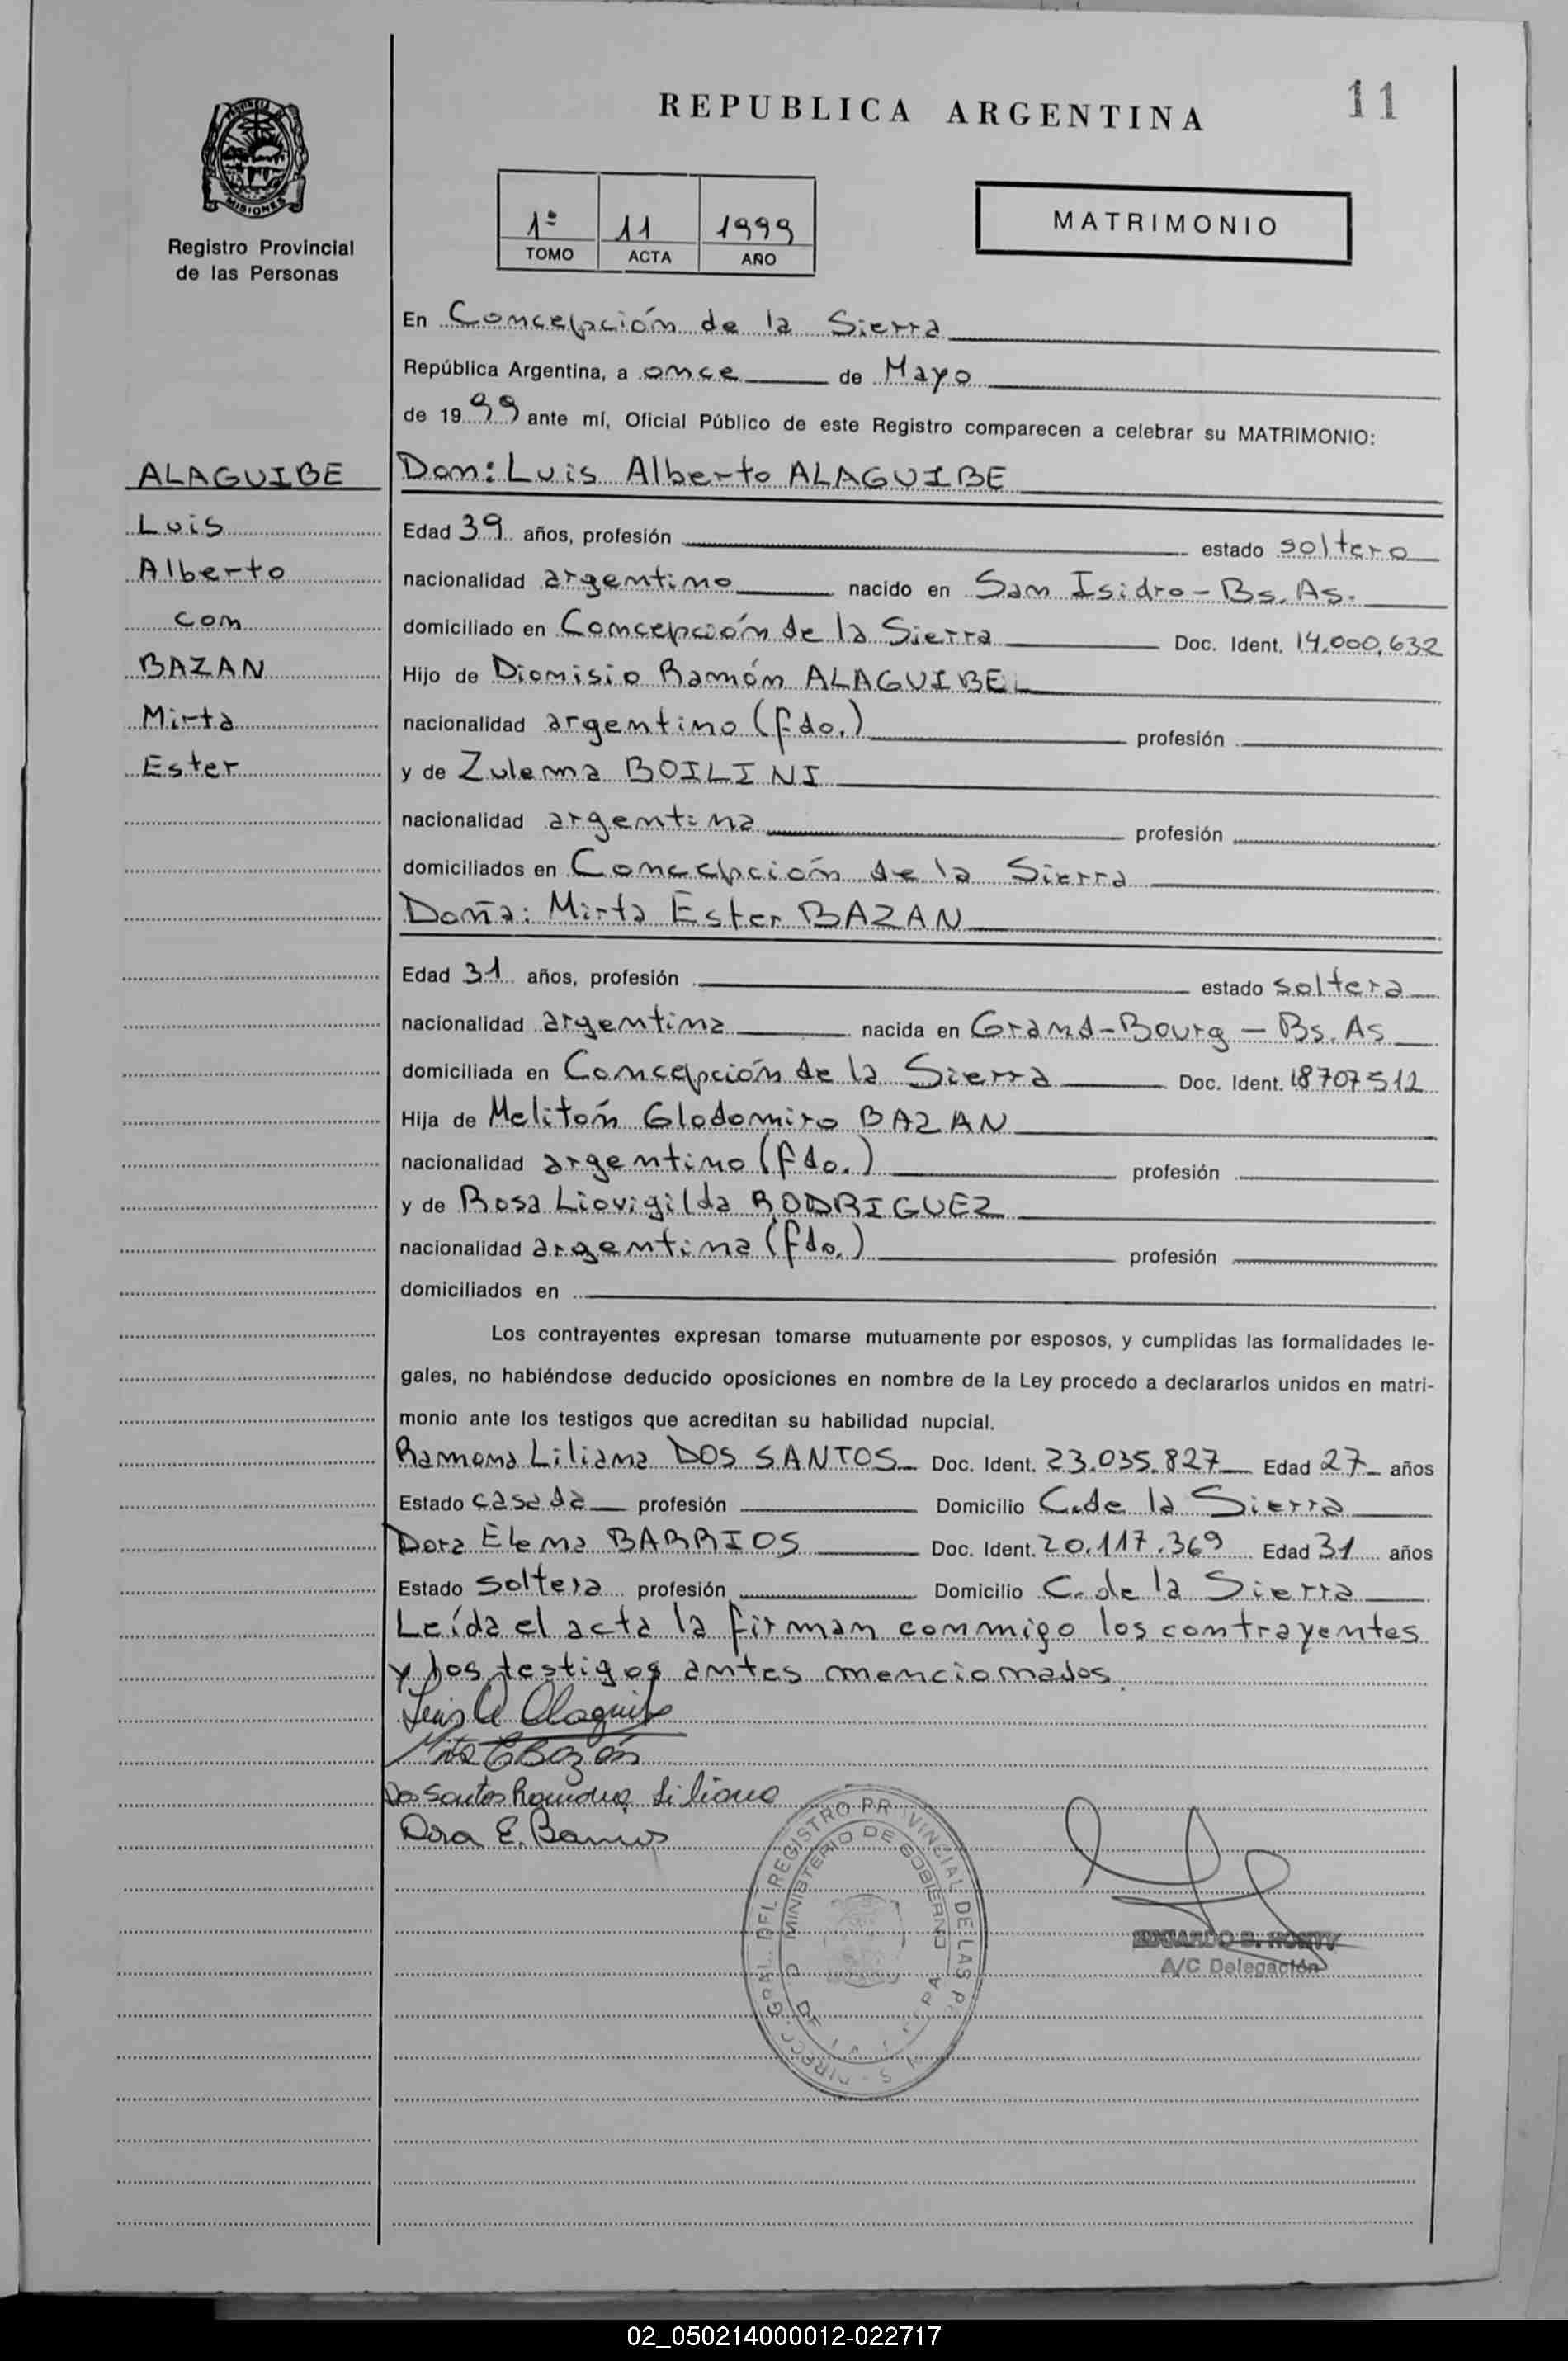 REPUBLICA ARGENTINA
11
MISIONES
Registro Provincial
de las Personas
1º 11 1999
TOMO ACTA AÑO
MATRIMONIO
En Concepción de la Sierra
República Argentina, a once de Mayo
de 1999 ante mí, Oficial Público de este Registro comparecen a celebrar su MATRIMONIO:
ALAGUIBE
Luis
Alberto
con
BAZAN
Mirta
Ester
Don: Luis Alberto ALAGUIBE
Edad 39 años, profesión estado soltero
nacionalidad argentino nacido en San Isidro - Bs. As.
domiciliado en Concepción de la Sierra Doc. Ident. 14.000.632
Hijo de Dionisio Ramón ALAGUIBE
nacionalidad argentino (fdo.) profesión
y de Zulema BOILINI
nacionalidad argentina profesión
domiciliados en Concepción de la Sierra
Doña: Mirta Ester BAZAN
Edad 31 años, profesión estado soltera
nacionalidad argentina nacida en Grand-Bourg - Bs. As
domiciliada en Concepción de la Sierra Doc. Ident. 18707512
Hija de Melitón Glodomiro BAZAN
nacionalidad argentino (fdo.) profesión
y de Rosa Liovigilda RODRIGUEZ
nacionalidad argentina (fdo.) profesión
domiciliados en
Los contrayentes expresan tomarse mutuamente por esposos, y cumplidas las formalidades le-
gales, no habiéndose deducido oposiciones en nombre de la Ley procedo a declararlos unidos en matri-
monio ante los testigos que acreditan su habilidad nupcial.
Ramona Liliana DOS SANTOS Doc. Ident. 23.035.827 Edad 27 años
Estado casada profesión Domicilio C. de la Sierra
Dora Elena BARRIOS Doc. Ident. 20.117.369 Edad 31 años
Estado soltera profesión Domicilio C. de la Sierra
Leída el acta la firman conmigo los contrayentes
y los testigos antes mencionados.
Luis A Alaguibe
Mirta E Bazán
Dos Santos Ramona Liliana
Dora E. Barrios
DIRECC. GRAL. DEL REGISTRO PROVINCIAL DE LAS
MINISTERIO DE GOBIERNO
EDUARDO
A/C Delegación
02_050214000012-022717